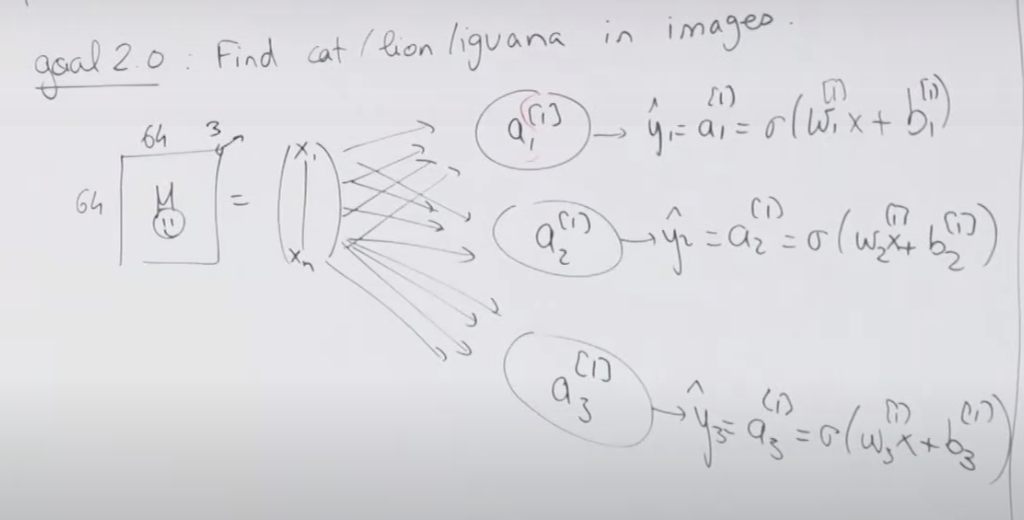 goal 2.0 : Find cat / lion / iguana in images.
64 3
64 = x₁ xₙ
a₁^[1] → ŷ₁ = a₁^[1] = σ(w₁^[1] x + b₁^[1])
a₂^[1] → ŷ₂ = a₂^[1] = σ(w₂^[1] x + b₂^[1])
a₃^[1] → ŷ₃ = a₃^[1] = σ(w₃^[1] x + b₃^[1])